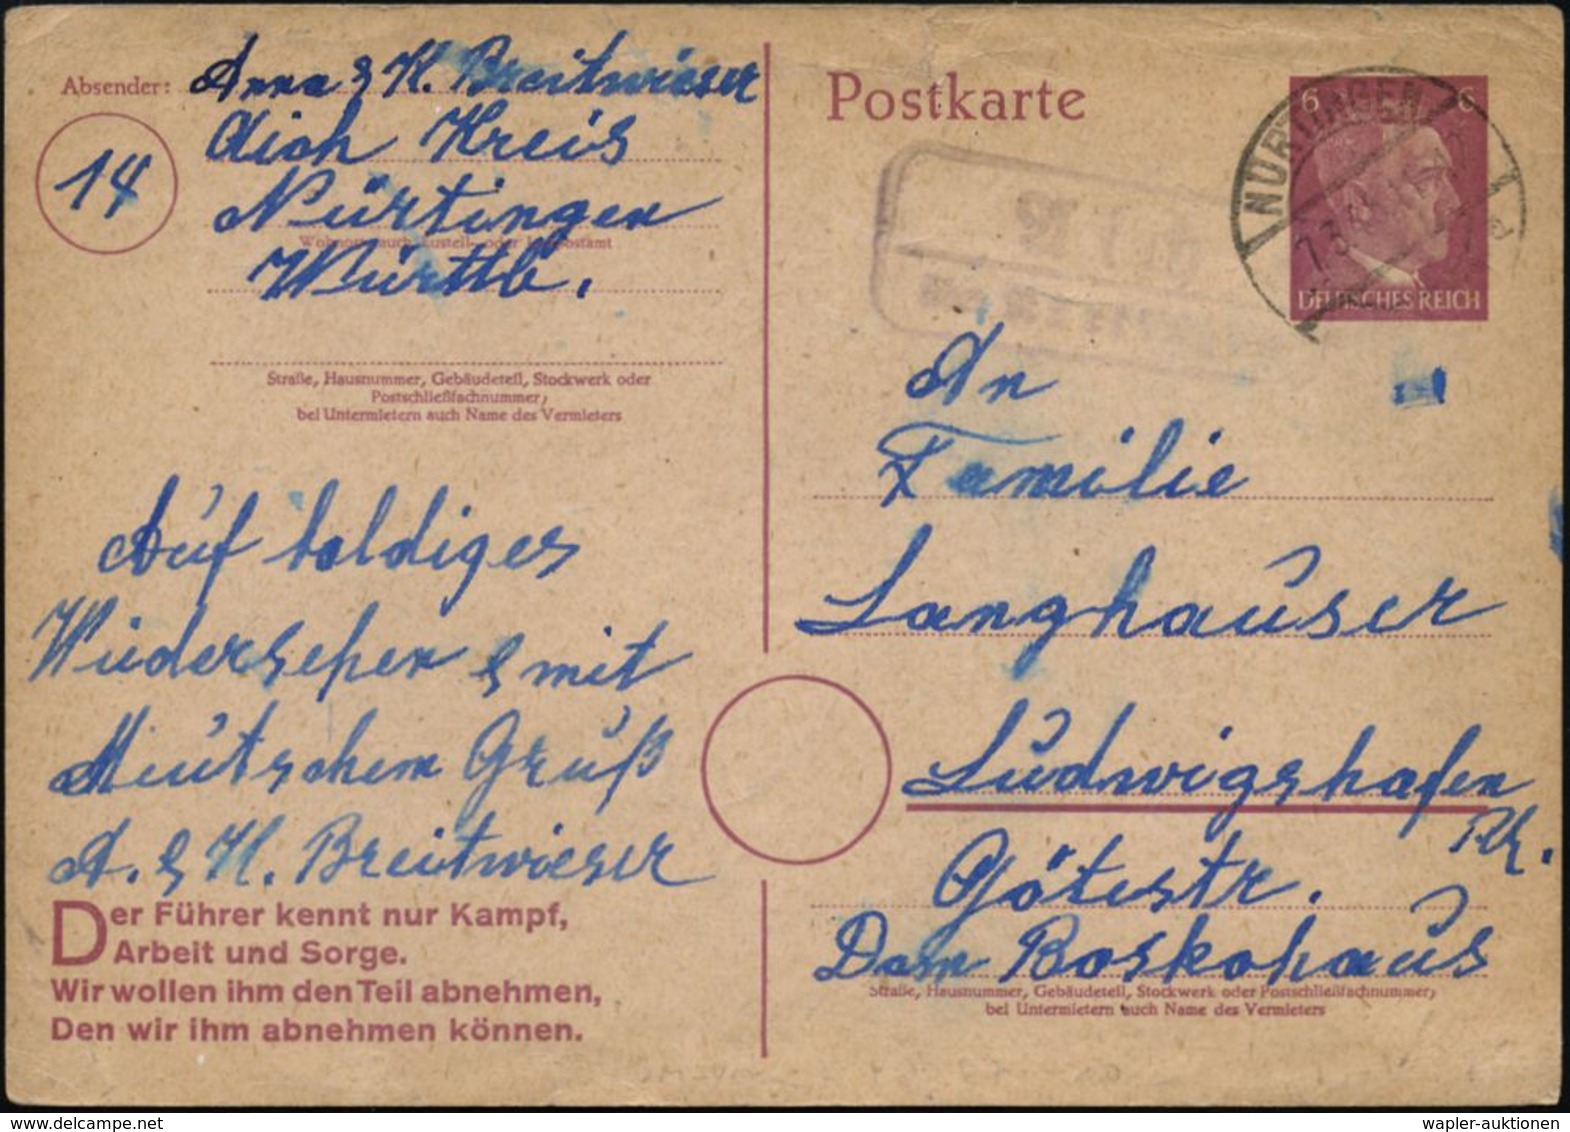 Absender: Anna & H. Breitwieser
Aich Kreis
14
Nürtingen
Wohnort, auch Zustell- oder Leitpostamt
Württb.
Straße, Hausnummer, Gebäudeteil, Stockwerk oder
Postschließfachnummer;
bei Untermietern auch Name des Vermieters
Auf baldiges
Wiedersehen & mit
Deutschem Gruß
A. & H. Breitwieser
Der Führer kennt nur Kampf,
Arbeit und Sorge.
Wir wollen ihm den Teil abnehmen,
Den wir ihm abnehmen können.
Postkarte
6 6
NÜRTINGEN
DEUTSCHES REICH
An
Familie
Langhauser
Ludwigshafen
Rh.
Götestr.
Dom Boskohaus
Straße, Hausnummer, Gebäudeteil, Stockwerk oder Postschließfachnummer;
bei Untermietern auch Name des Vermieters
wapler-auktionen